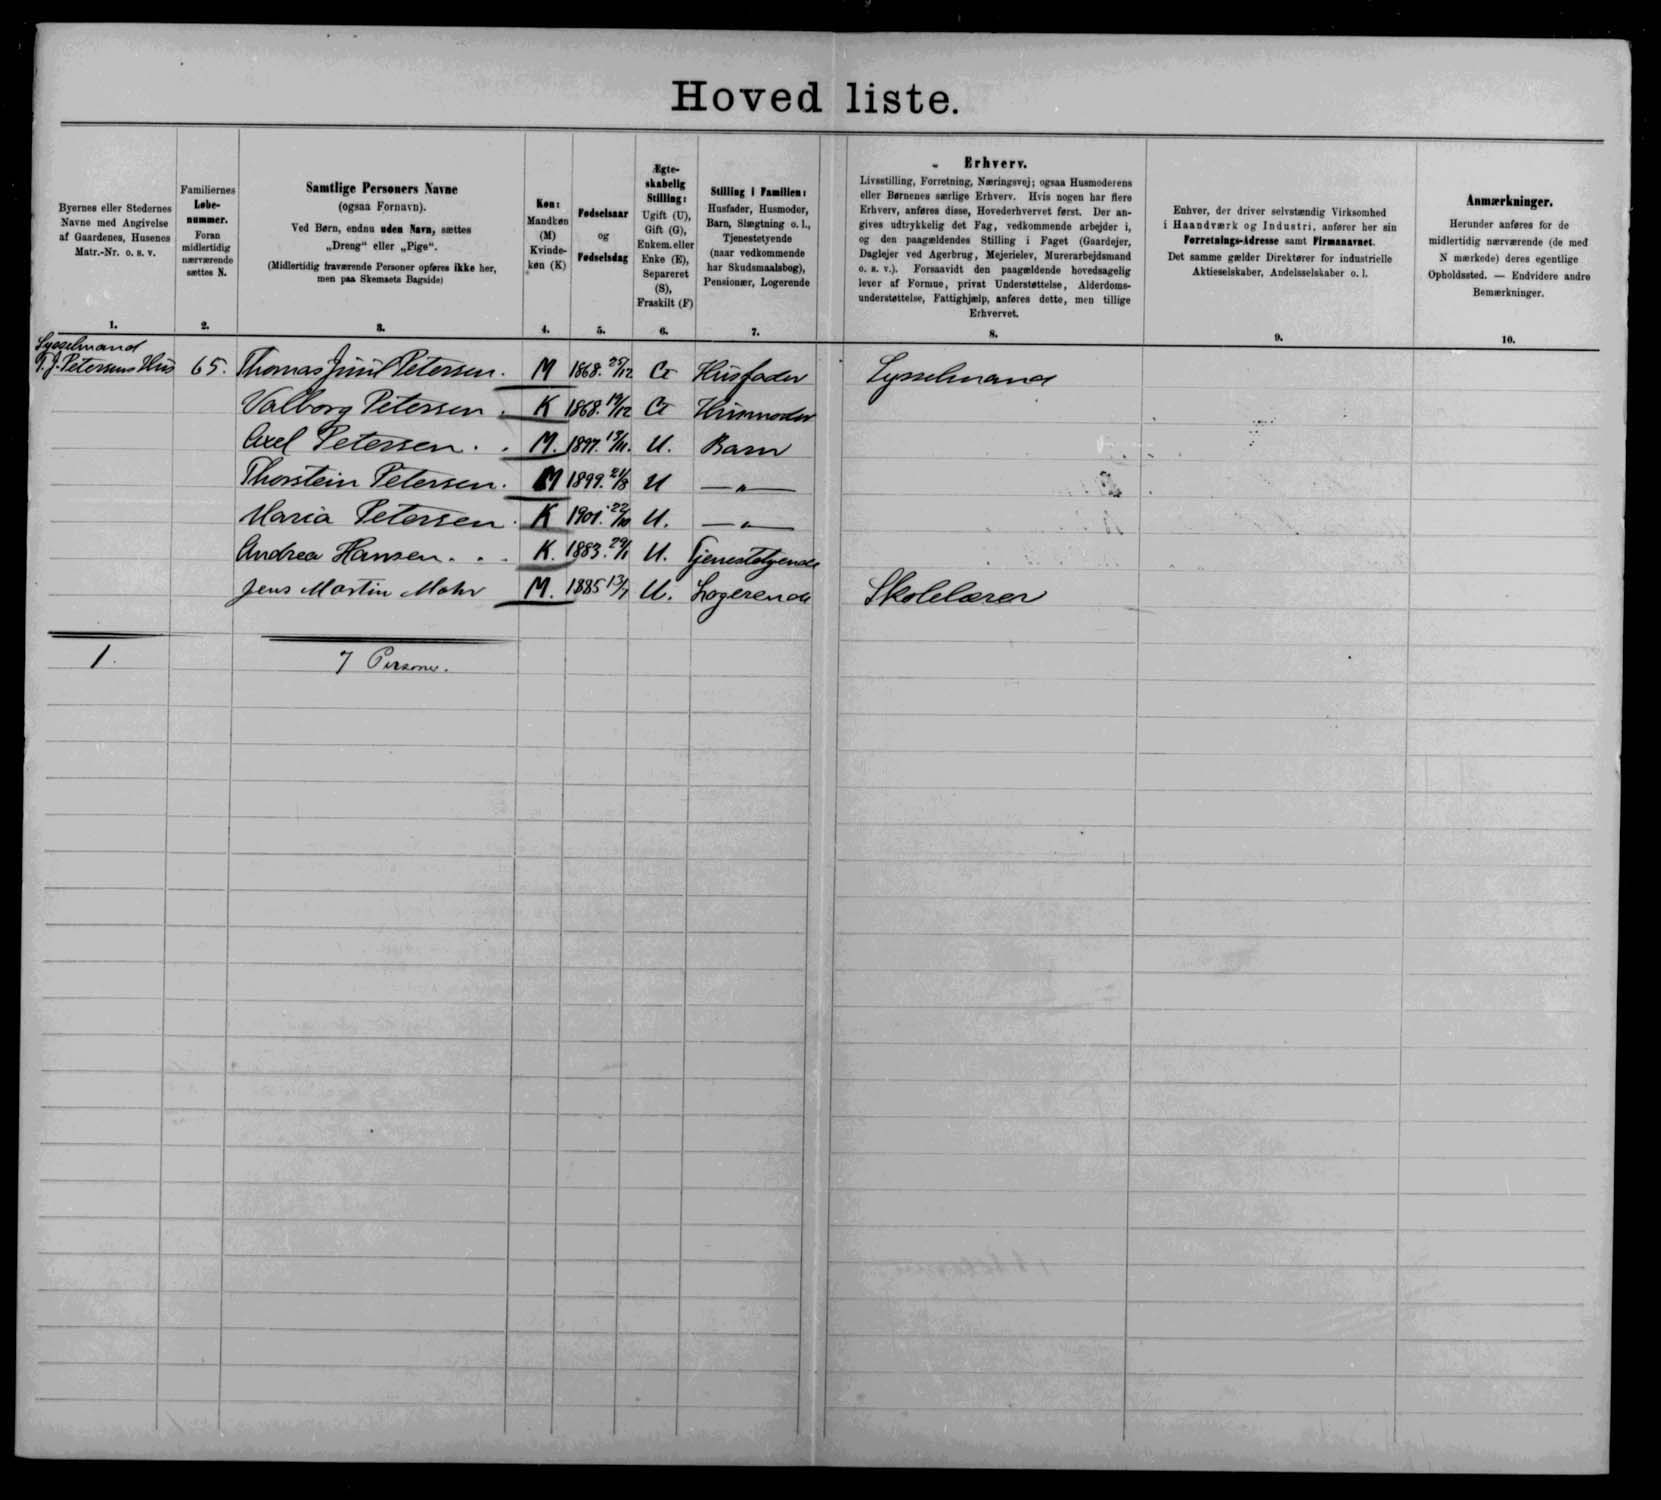 Hovedliste.
Byernes eller Stedernes
Navne med Angivelse
af Gaardenes, Husenes
Matr.-Nr. o. s. v.
1.
Familiernes
Løbe-
nummer.
Foran
midlertidig
nærværende
sættes N.
2.
Samtlige Personers Navne
(ogsaa Fornavn).
Ved Børn, endnu uden Navn, sættes
„Dreng" eller „Pige".
(Midlertidig fraværende Personer opføres ikke her,
men paa Skemaets Bagside)
3.
Køn:
Mandkøn
(M)
Kvinde-
køn (K)
4.
Fødselsaar
og
Fødselsdag
5.
Ægte-
skabelig
Stilling:
Ugift (U),
Gift (G),
Enkem. eller
Enke (E),
Separeret
(S),
Fraskilt (F)
6.
Stilling i Familien:
Husfader, Husmoder,
Barn, Slægtning o. l.,
Tjenestetyende
(naar vedkommende
har Skudsmaalsbog),
Pensionær, Logerende
7.
Erhverv.
Livsstilling, Forretning, Næringsvej; ogsaa Husmoderens
eller Børnenes særlige Erhverv. Hvis nogen har flere
Erhverv, anføres disse, Hovederhvervet først. Der an-
gives udtrykkelig det Fag, vedkommende arbejder i,
og den paagældendes Stilling i Faget (Gaardejer,
Daglejer ved Agerbrug, Mejerielev, Murerarbejdsmand
o. s. v.). Forsaavidt den paagældende hovedsagelig
lever af Formue, privat Understøttelse, Alderdoms-
understøttelse, Fattighjælp, anføres dette, men tillige
Erhvervet.
8.
Enhver, der driver selvstændig Virksomhed
i Haandværk og Industri, anfører her sin
Forretnings-Adresse samt Firmanavnet.
Det samme gælder Direktører for industrielle
Aktieselskaber, Andelsselskaber o. l.
9.
Anmærkninger.
Herunder anføres for de
midlertidig nærværende (de med
N mærkede) deres egentlige
Opholdssted. — Endvidere andre
Bemærkninger.
10.
Sysselmand
T. J. Petersens Hus 65. Thomas Juul Petersen. M 1868. 25/12 G Husfader Sysselmand
Valborg Petersen. K 1868. 19/12 G Husmoder
Axel Petersen. . M. 1897. 13/11. U. Barn
Thorstein Petersen. M 1899. 21/8 U —„—
Maria Petersen. K 1901. 22/10 U. —„—
Andrea Hansen. . . K. 1883. 29/1 U. Tjenestetyende
Jens Martin Mohr M. 1885 13/7 U. Logerende Skolelærer
1. 7 Personer.